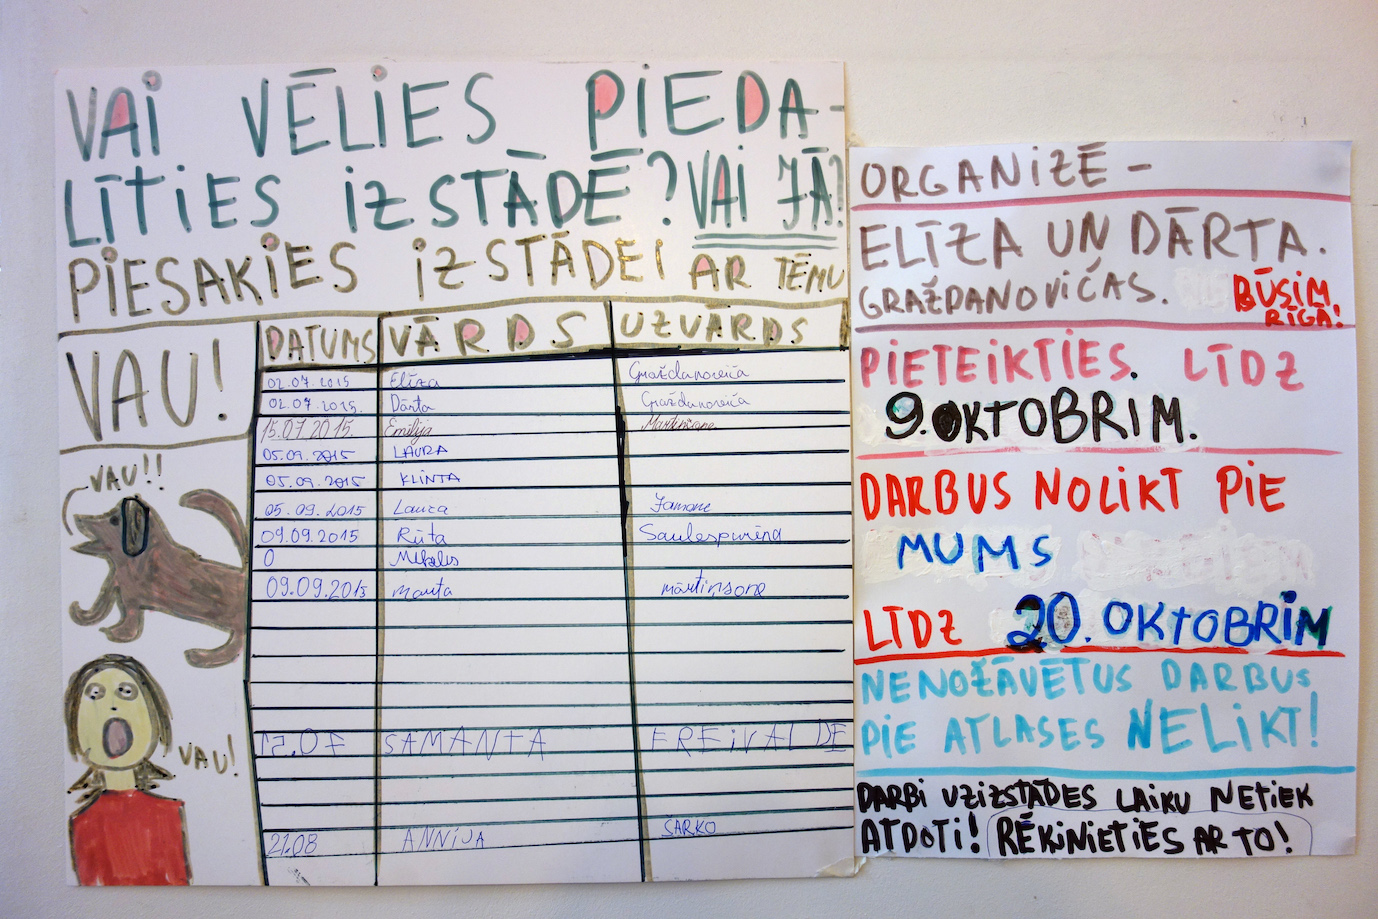 VAI VĒLIES PIEDA-
LĪTIES IZSTĀDĒ? VAI JĀ?
PIESAKIES IZSTĀDEI AR TĒMU
VAU!
VAU!!
VAU!
DATUMS VĀRDS UZVĀRDS
02.07.2015 Elīza Graždanoviča
02.07.2015. Dārta Graždanoviča
15.07.2015. Emīlija Martinsone
05.09.2015 LAURA
05.09.2015 KLINTA
05.09.2015 Laura
09.09.2015 Rūta Saulespurēna
0
09.09.2015 marta mārtiņsone
17.07 SAMANTA FREIVALDE
21.08 ANNIJA SARKO
ORGANIZĒ -
ELĪZA UN DĀRTA.
GRAŽDANOVIČAS. BŪSIM
RĪGĀ!
PIETEIKTIES. LĪDZ
9.OKTOBRIM.
DARBUS NOLIKT PIE
MUMS
LĪDZ 20. OKTOBRIM
NENOŽĀVĒTUS DARBUS
PIE ATLASES NELIKT!
DARBI UZIZSTĀDES LAIKU NETIEK
ATDOTI! RĒĶINIETIES AR TO!